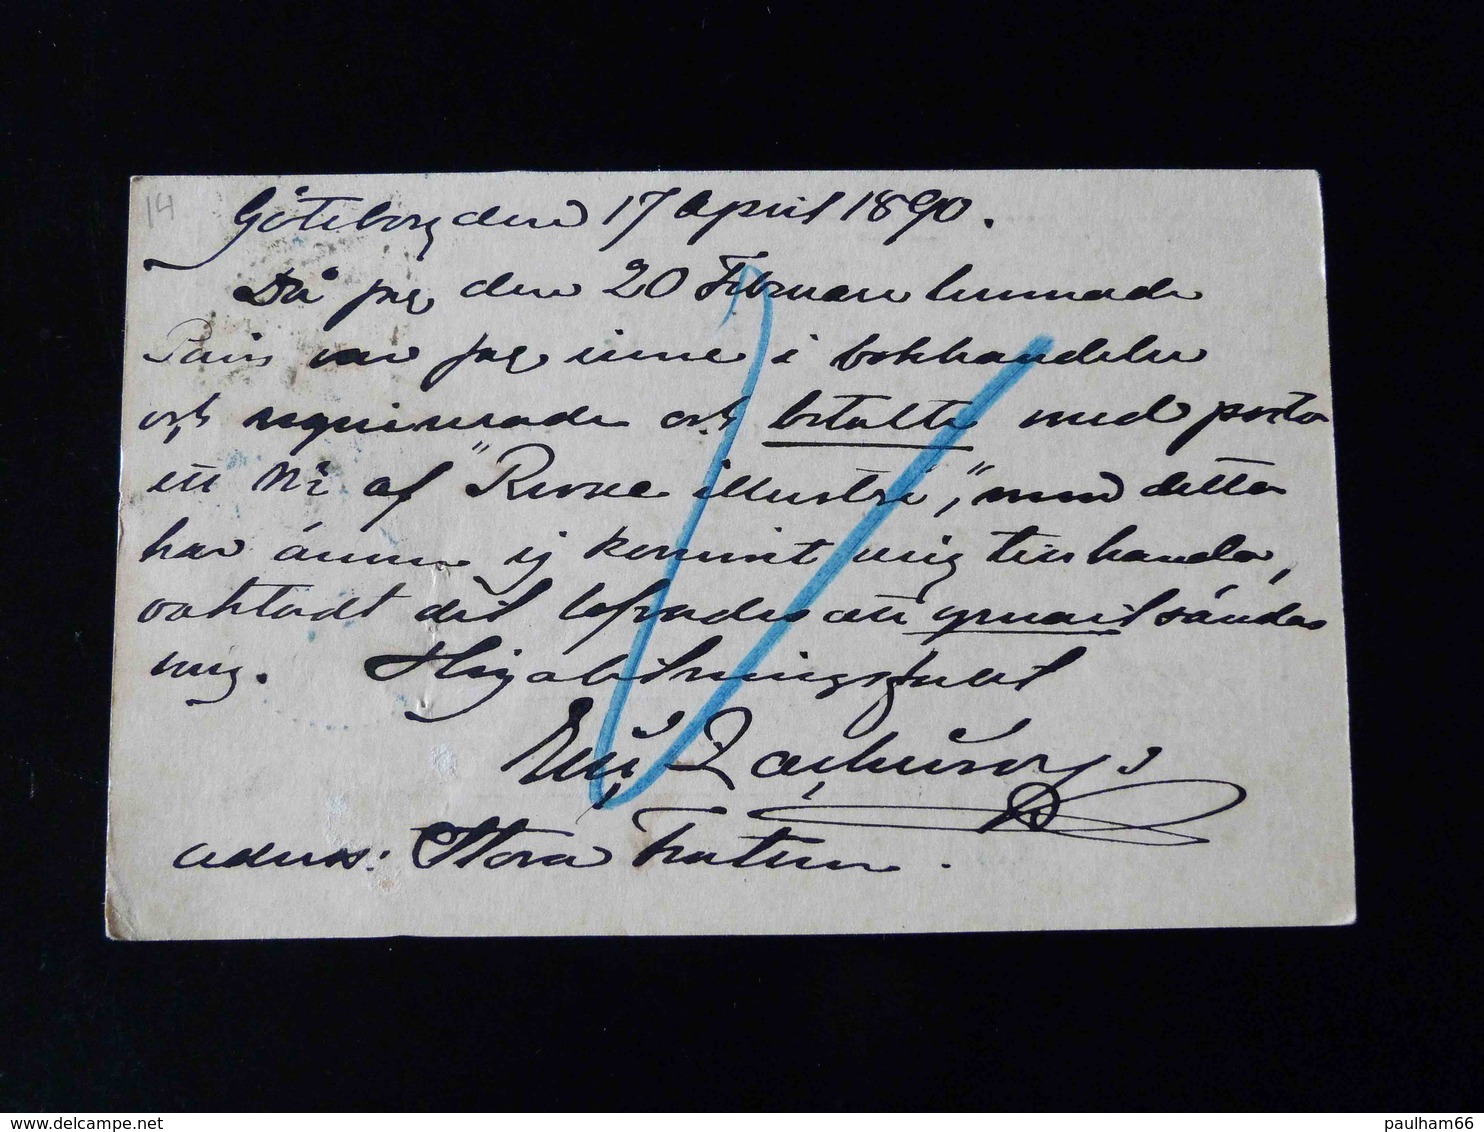 14
Göteborg den 17 April 1890.
Då jag den 20 Februari lemnade
Paris var jag inne i bokhandeln
och requirerade och betalte med porto
ett Nr af "Revue illustré", men detta
har ännu ej kommit mig tillhanda,
oaktadt det lofvades att genast sändas
mig. Högaktningsfullt
Zachrisson
adress: Stora Teatern.
delcampe.net
paulham66